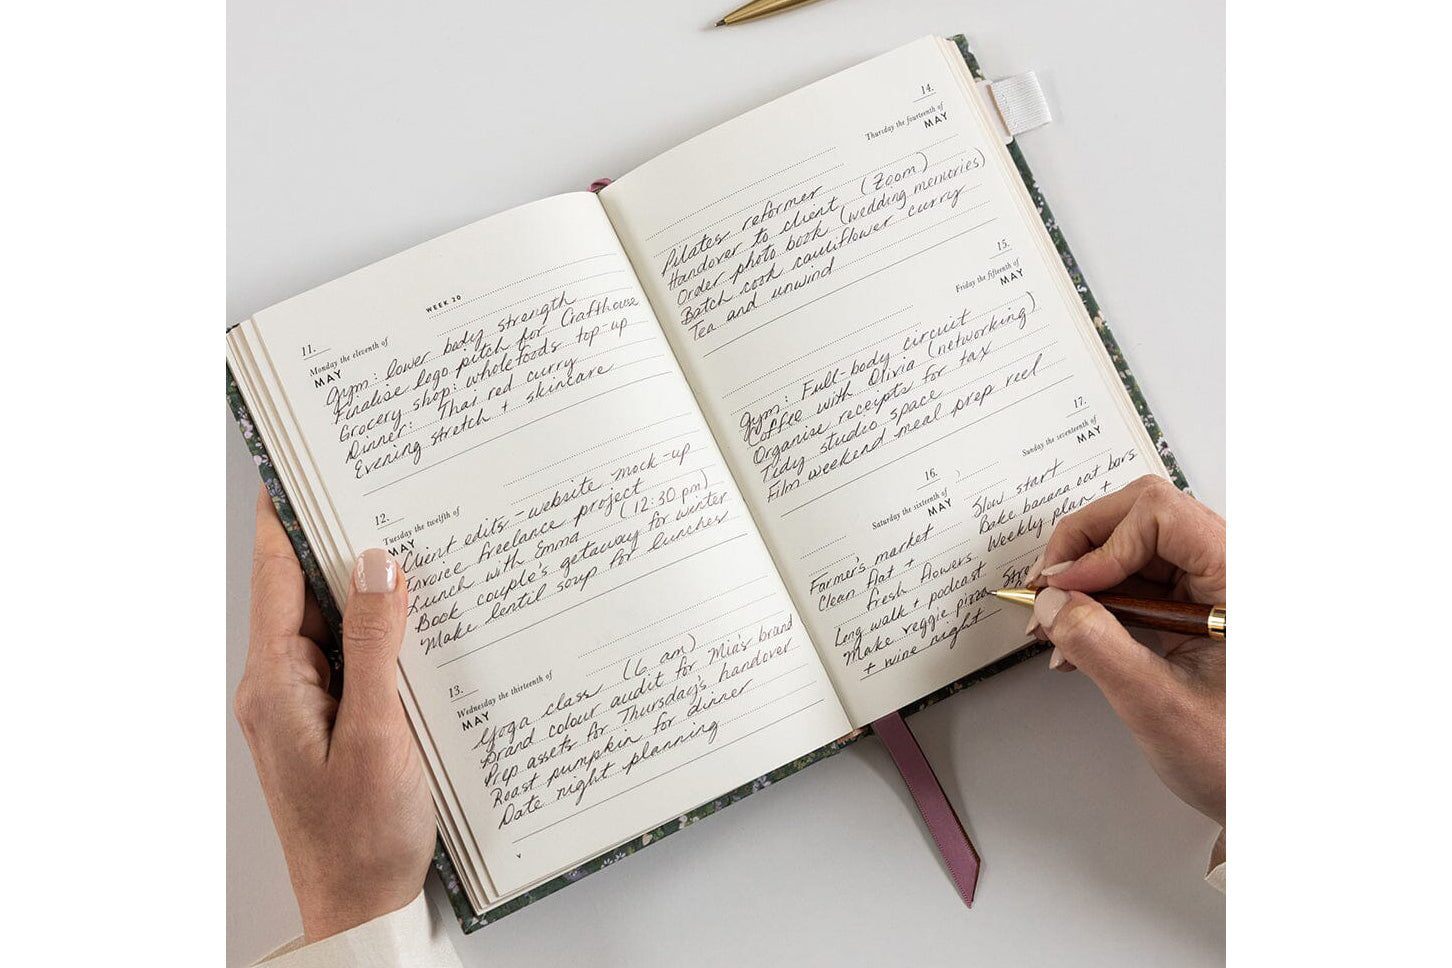 WEEK 20
11.
Monday the eleventh of
MAY
Gym: lower body strength
Finalise logo pitch for Crafthouse
Grocery shop: wholefoods top-up
Dinner: Thai red curry
Evening stretch + skincare
12.
Tuesday the twelfth of
MAY
Client edits - website mock-up
Invoice freelance project
Lunch with Emma (12:30 pm)
Book couple's getaway for winter
Make lentil soup for lunches
13.
Wednesday the thirteenth of
MAY
Yoga class (6 am)
Brand colour audit for Mia's brand
Prep assets for Thursday's handover
Roast pumpkin for dinner
Date night planning
v
14.
Thursday the fourteenth of
MAY
Pilates reformer
Handover to client (Zoom)
Order photo book (wedding memories)
Batch cook cauliflower curry
Tea and unwind
15.
Friday the fifteenth of
MAY
Gym: Full-body circuit
Coffee with Olivia (networking)
Organise receipts for tax
Tidy studio space
Film weekend meal prep reel
16.
Saturday the sixteenth of
MAY
Farmer's market
Clean flat +
fresh flowers
Long walk + podcast
Make veggie pizza
+ wine night
17.
Sunday the seventeenth of
MAY
Slow start
Bake banana oat bars
Weekly plan +